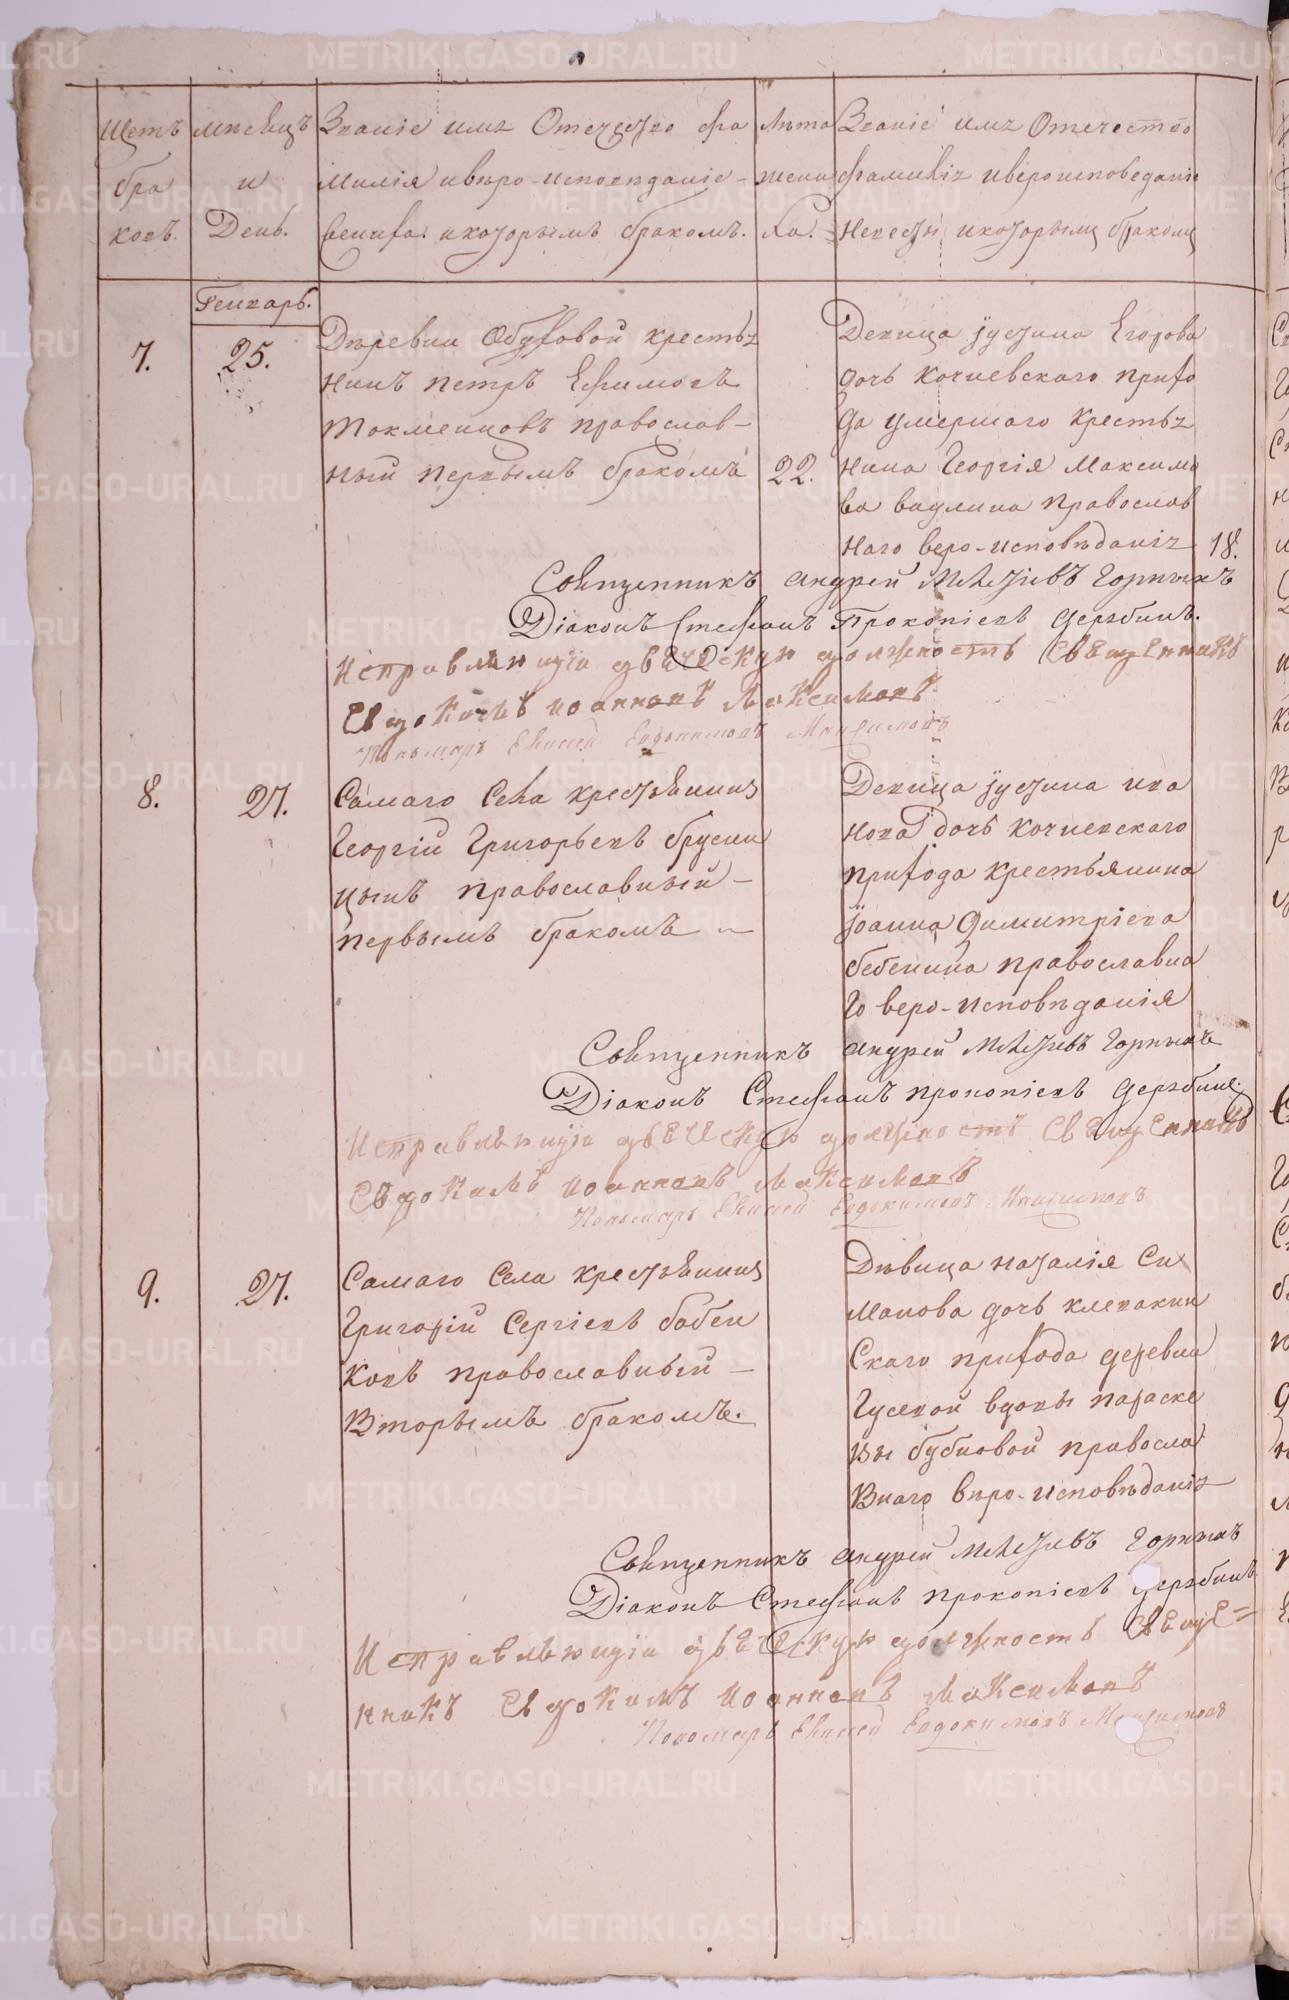 Щетъ бра ковъ.
Мѣсецъ и День.
Званіе имя Отечество фа
милія ивѣро-исповѣданіе
жениха. икоторымъ бракомъ.
Лѣта жени ха.
Званіе имя Отечество
фамилія ивероисповеданіе
Невесты икоторымъ бракомъ
Генварь.
7.
25.
Дѣревни Обуховой кресть
нинъ петръ Ефимовъ
Токменцовъ православ-
ный первымъ бракомъ
22.
Девица іустина Егорова
дочь Кочневскаго прихо
да умершаго кресть
нина Георгія Максимо
ва ваулина православ
наго веро-исповѣданія
18.
Священникъ андрей Горныхъ
Діаконъ Стефанъ Прокопіевъ дерябинъ.
Исправляющіи дьяческую должность Священникъ
Евдокимъ иоанновъ Максимовъ
Пономарь Елисей Евдокимовъ Максимовъ
8.
27.
Самаго Села крестьянинъ
Георгій Григорьевъ брусни
цынъ православный-
первымъ бракомъ
Девица іустина ива
нова дочь кочневскаго
прихода крестьянина
іоанна Димитріева
бебенина православна
го веро-исповѣданія
Священникъ андрей Горныхъ
Діаконъ Стефанъ прокопіевъ дерябинъ.
Исправляющіи дьяческую должность Священникъ
Евдокимъ иоанновъ Максимовъ
Пономарь Елисей Евдокимовъ Максимовъ
9.
27.
Самаго Села крестьянинъ
Григорій Сергіевъ бабен
ковъ православный-
Вторымъ бракомъ.
Дѣвица наталія Си
манова дочь клевакин
Скаго прихода деревни
Гусевой вдовы параске
вы бубновой правосла
Внаго вѣро-исповѣданія
Священникъ андрей Горныхъ
Діаконъ Стефанъ прокопіевъ дерябинъ
Исправляющіи дьяческую должность Свяще=
ннкъ Евдокимъ иоанновъ Максимовъ
Пономарь Елисей Евдокимовъ Максимовъ
METRIKI.GASO-URAL.RU